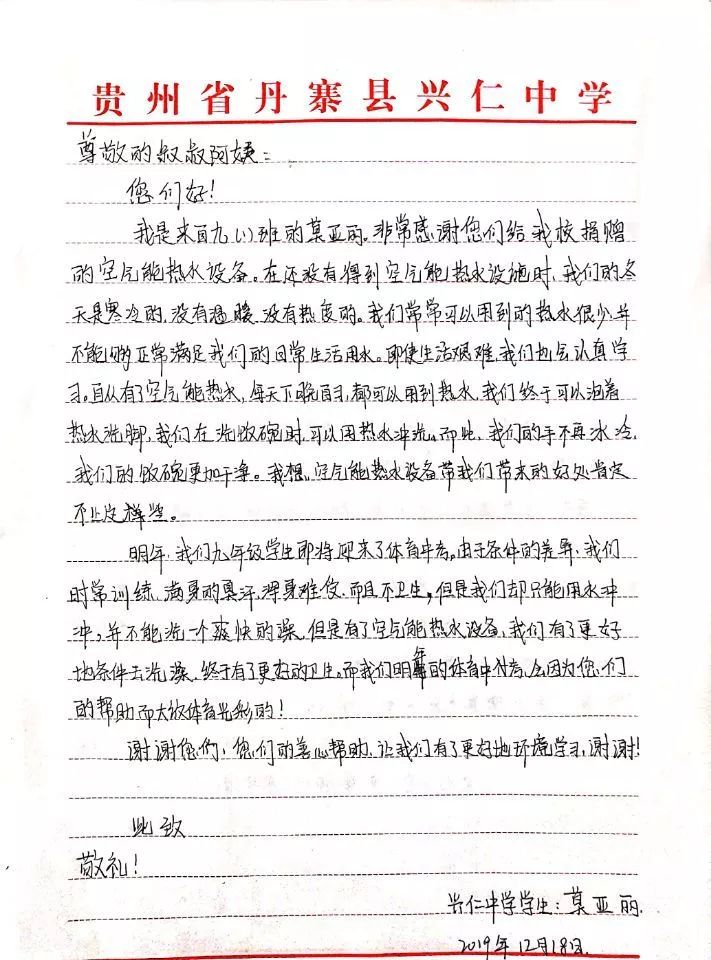 贵州省丹寨县兴仁中学
尊敬的叔叔阿姨:
您们好!
我是来自九(1)班的莫亚丽。非常感谢您们给我校捐赠
的空气能热水设备。在还没有得到空气能热水设施时,我们的冬
天是寒冷的,没有温暖,没有热度的。我们常常可以用到的热水很少,并
不能够正常满足我们的日常生活用水。即使生活艰难,我们也会认真学
习。自从有了空气能热水,每天下晚自习,都可以用到热水,我们终于可以泡着
热水洗脚,我们在洗饭碗时,可以用热水冲洗。而此,我们的手不再冰冷,
我们的饭碗更加干净。我想,空气能热水设备带我们带来的好处肯定
不止这样些。
明年,我们九年级学生即将迎来了体育中考,由于条件的差异,我们
时常训练,满身的臭汗,浑身难受,而且不卫生,但是我们却只能用水冲
冲,并不能洗一个爽快的澡。但是有了空气能热水设备,我们有了更好
地条件去洗澡,终于有了更好的卫生。而我们明年的体育中考,会因为您们
的帮助而大放体育光彩的!
谢谢您们,您们的善心帮助,让我们有了更好地环境学习,谢谢!
此致
敬礼!
兴仁中学学生:莫亚丽.
2019年12月18日.